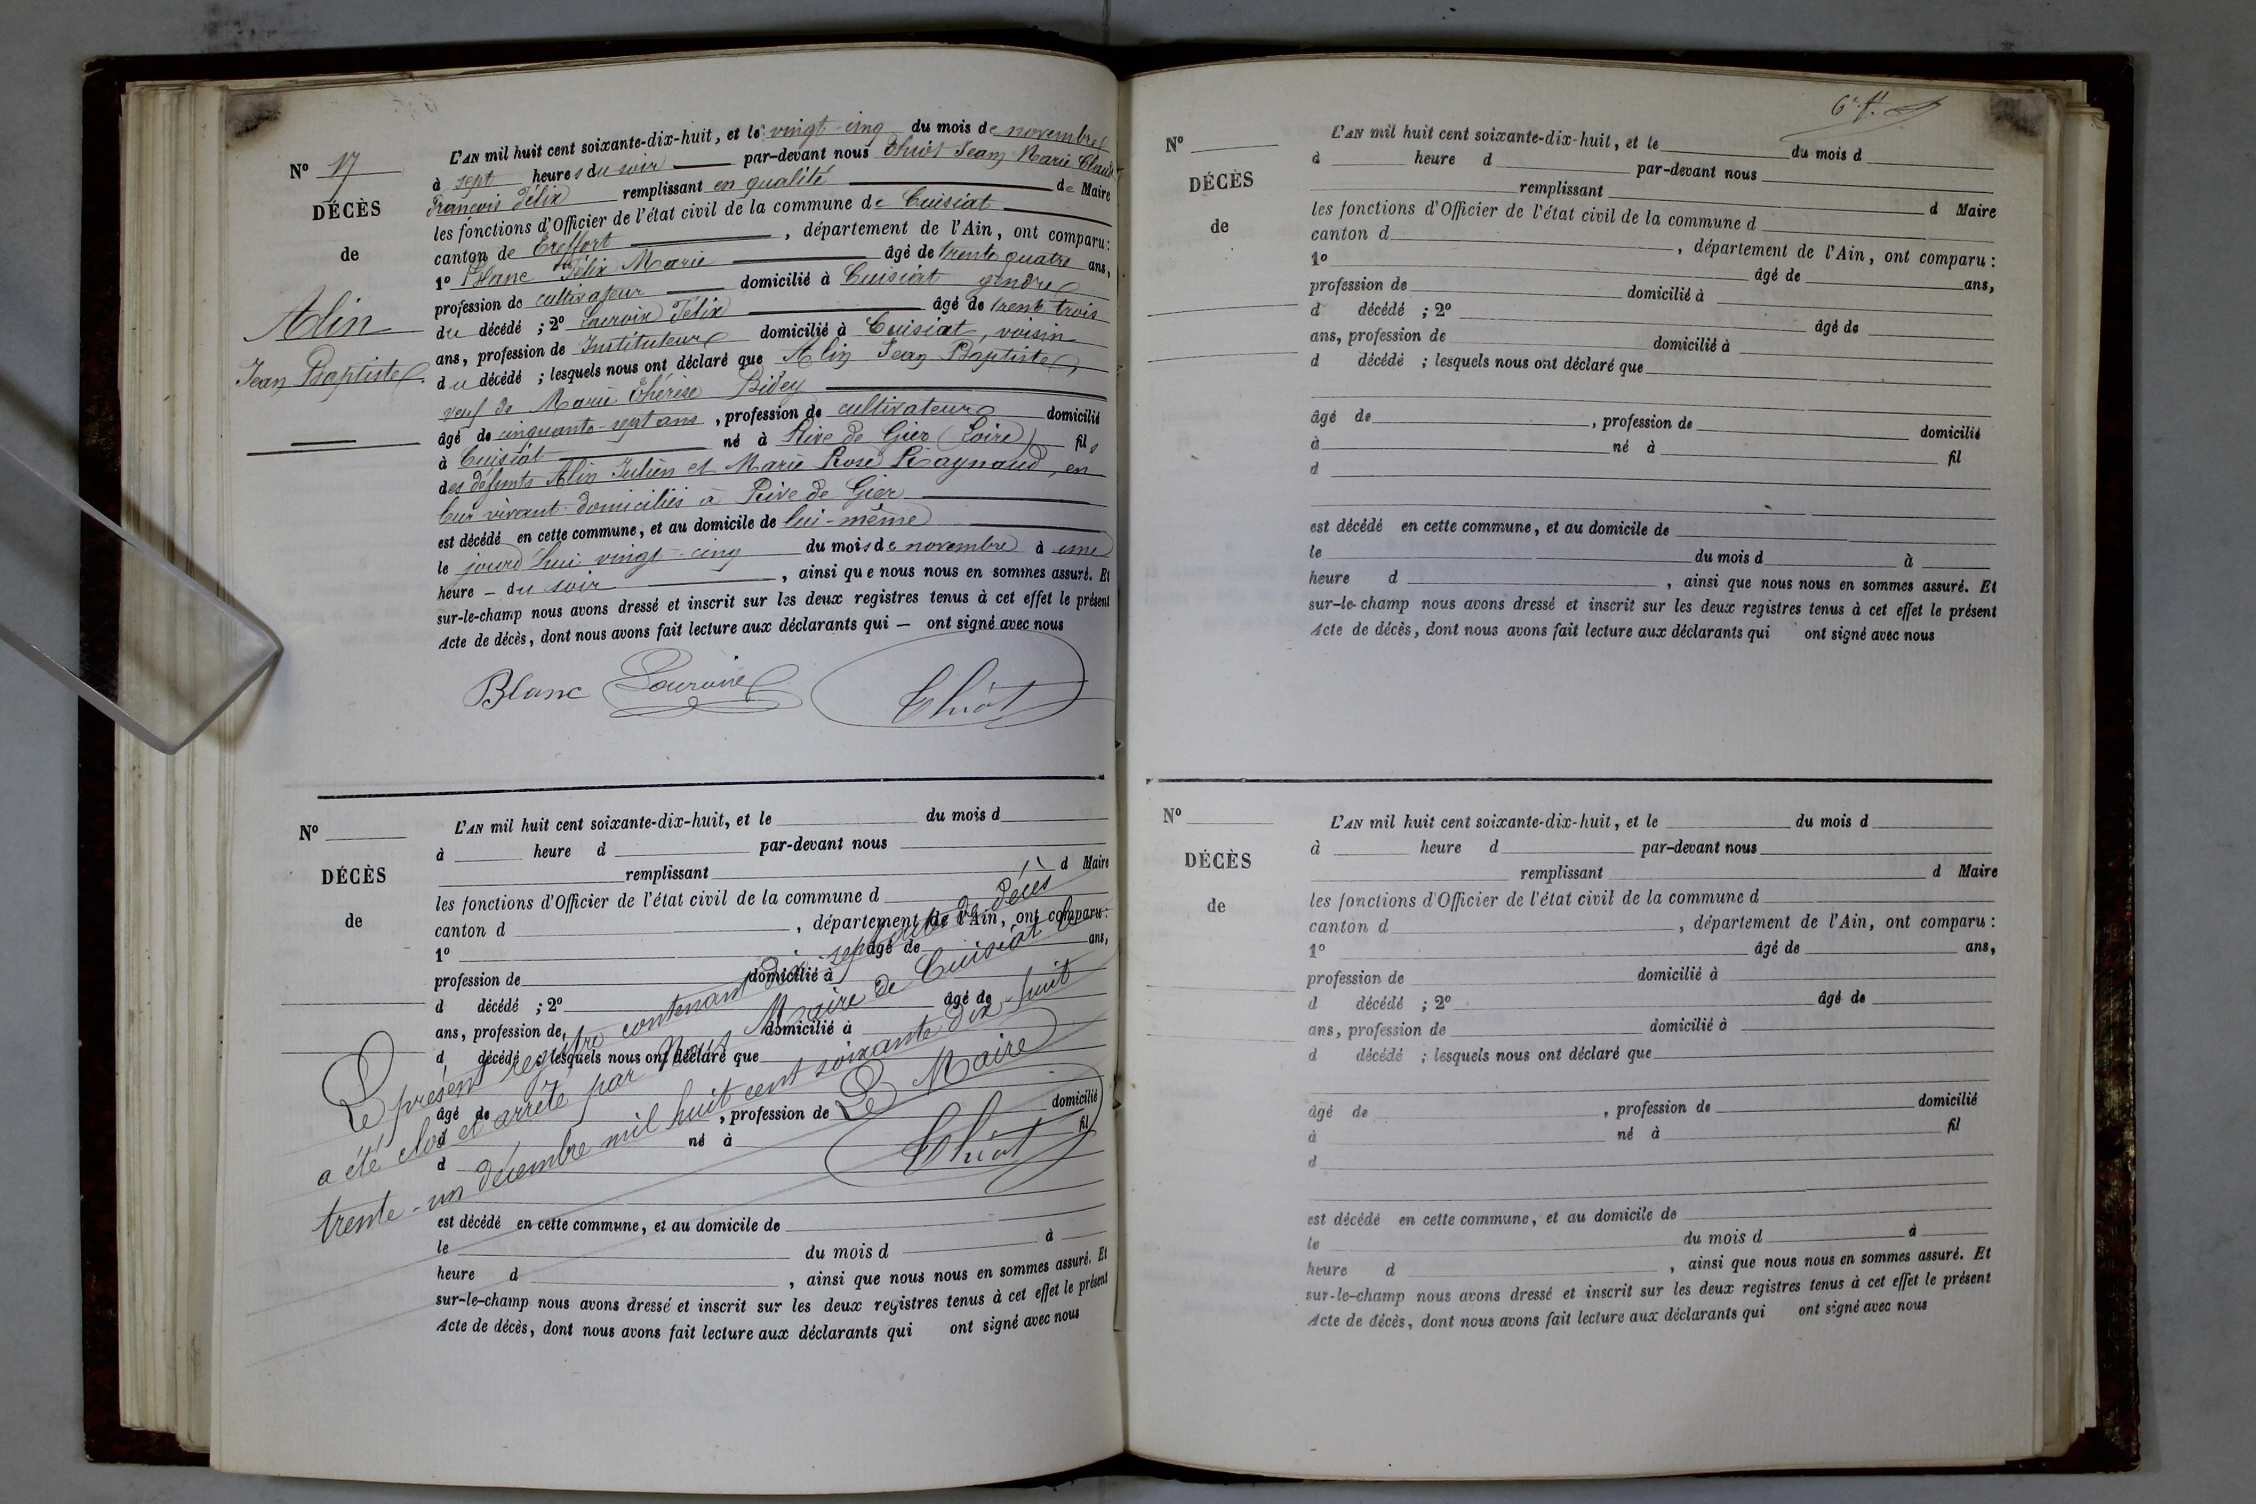 N° 17
DÉCÈS
de
Alin
Jean Baptiste
L'AN mil huit cent soixante-dix-huit, et le vingt-cinq du mois de novembre
à sept heures du soir par-devant nous Thiót Jean Marie Claude
François Félix remplissant en qualité de Maire
les fonctions d'Officier de l'état civil de la commune de Cuisiat
canton de Treffort, département de l'Ain, ont comparu:
1° Blanc Félix Marie âgé de trente quatre ans,
profession de cultivateur domicilié à Cuisiat gendre
du décédé ; 2° Félix âgé de trente trois
ans, profession de Instituteur domicilié à Cuisiat, voisin
du décédé ; lesquels nous ont déclaré que Alin Jean Baptiste
veuf de Marie Thérèse Bidey
âgé de cinquante-sept ans, profession de cultivateur domicilié
à Cuisiat né à Rive de Gier (Loire) fils
des défunts Alin Julien et Marie Rose Raynaud, en
leur vivant domiciliés à Rive de Gier
est décédé en cette commune, et au domicile de lui-même
le jourd'hui vingt-cinq du mois de novembre à une
heure - du soir, ainsi que nous nous en sommes assuré. Et
sur-le-champ nous avons dressé et inscrit sur les deux registres tenus à cet effet le présent
Acte de décès, dont nous avons fait lecture aux déclarants qui — ont signé avec nous
Blanc Thiót
N°
DÉCÈS
de
L'AN mil huit cent soixante-dix-huit, et le du mois d
à heure d par-devant nous
remplissant d Maire
les fonctions d'Officier de l'état civil de la commune d
canton d , département de l'Ain, ont comparu:
1° âgé de ans,
profession de domicilié à
d décédé ; 2° âgé de
ans, profession de domicilié à
d décédé ; lesquels nous ont déclaré que
âgé de , profession de domicilié
à né à fil
d
est décédé en cette commune, et au domicile de
le du mois d à
heure d , ainsi que nous nous en sommes assuré. Et
sur-le-champ nous avons dressé et inscrit sur les deux registres tenus à cet effet le présent
Acte de décès, dont nous avons fait lecture aux déclarants qui ont signé avec nous
Le présent registre contenant dix-sept actes de décès
a été clos et arrêté par Nous Maire de Cuisiat le
trente-un décembre mil huit cent soixante dix-huit
Le Maire
Thiót
N°
DÉCÈS
de
L'AN mil huit cent soixante-dix-huit, et le du mois d
à heure d par-devant nous
remplissant d Maire
les fonctions d'Officier de l'état civil de la commune d
canton d , département de l'Ain, ont comparu:
1° âgé de ans,
profession de domicilié à
d décédé ; 2° âgé de
ans, profession de domicilié à
d décédé ; lesquels nous ont déclaré que
âgé de , profession de domicilié
à né à fil
d
est décédé en cette commune, et au domicile de
le du mois d à
heure d , ainsi que nous nous en sommes assuré. Et
sur-le-champ nous avons dressé et inscrit sur les deux registres tenus à cet effet le présent
Acte de décès, dont nous avons fait lecture aux déclarants qui ont signé avec nous
N°
DÉCÈS
de
L'AN mil huit cent soixante-dix-huit, et le du mois d
à heure d par-devant nous
remplissant d Maire
les fonctions d'Officier de l'état civil de la commune d
canton d , département de l'Ain, ont comparu:
1° âgé de ans,
profession de domicilié à
d décédé ; 2° âgé de
ans, profession de domicilié à
d décédé ; lesquels nous ont déclaré que
âgé de , profession de domicilié
à né à fil
d
est décédé en cette commune, et au domicile de
le du mois d à
heure d , ainsi que nous nous en sommes assuré. Et
sur-le-champ nous avons dressé et inscrit sur les deux registres tenus à cet effet le présent
Acte de décès, dont nous avons fait lecture aux déclarants qui ont signé avec nous